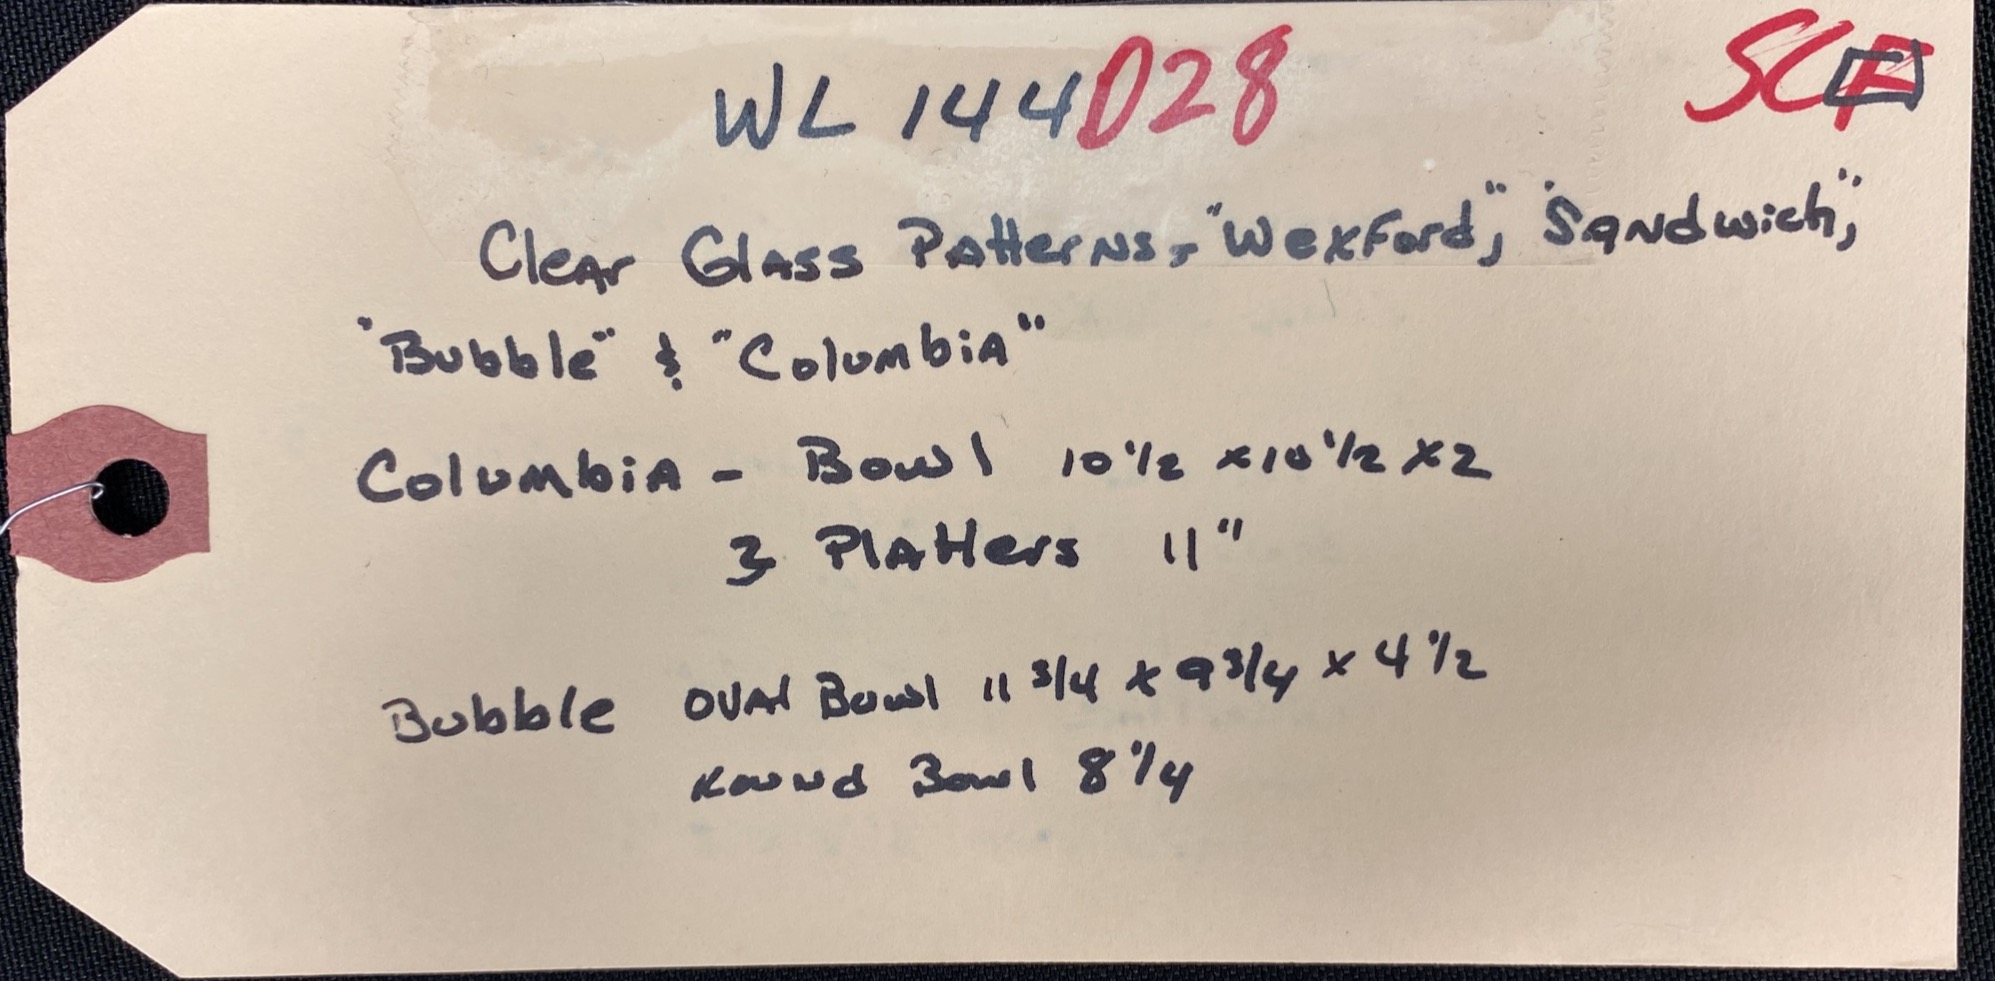 WL 144D28
SCF
Clear Glass Patterns, "Wexford", "Sandwich",
"Bubble" & "Columbia"
Columbia - Bowl 10 1/2 x 10 1/2 x 2
3 Platters 11"
Bubble Oval Bowl 11 3/4 x 9 3/4 x 4 1/2
Round Bowl 8 1/4